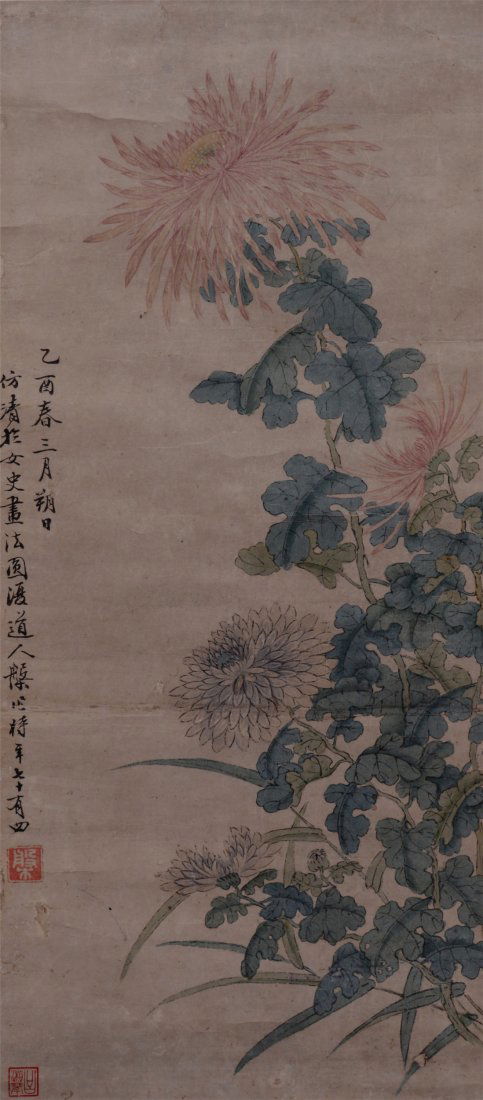 乙酉春三月朔日
仿清於女史畫法圓渡道人槃所時年七十有四
槃